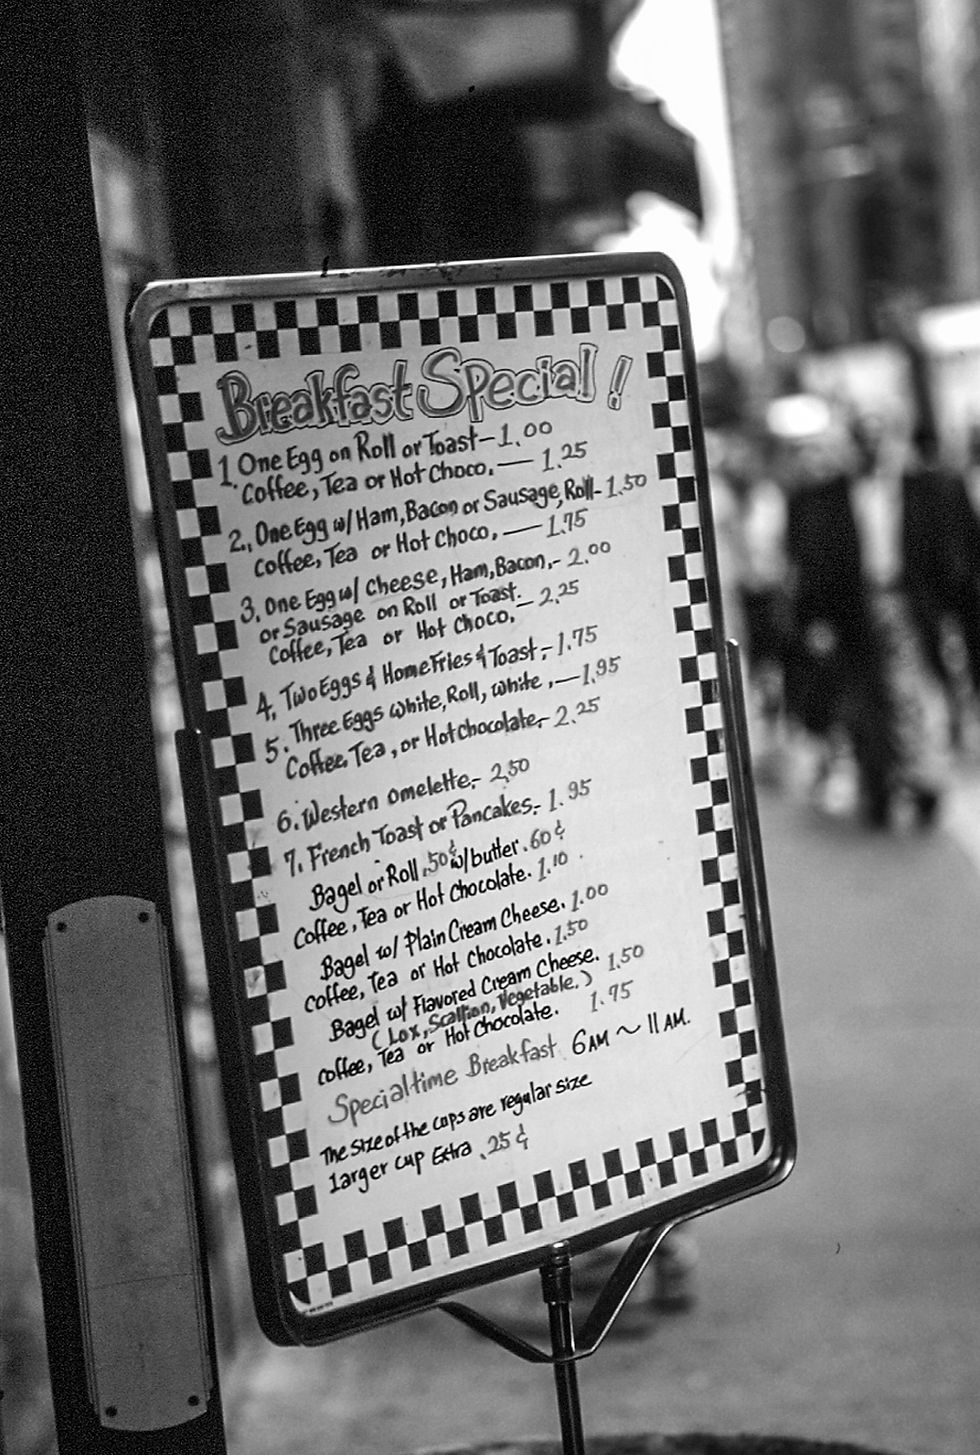 Breakfast Special!
1. One Egg on Roll or Toast — 1.00
Coffee, Tea or Hot Choco. — 1.25
2., One Egg w/ Ham, Bacon or Sausage, Roll - 1.50
Coffee, Tea or Hot Choco, — 1.75
3, One Egg w/ Cheese, Ham, Bacon, - 2.00
or Sausage on Roll or Toast.
Coffee, Tea or Hot Choco. — 2.25
4, Two Eggs & Home Fries & Toast, - 1.75
5. Three Eggs White, Roll, White, — 1.95
Coffee, Tea, or Hot chocolate, - 2.25
6. Western Omelette, - 2.50
7. French Toast or Pancakes. - 1.95
Bagel or Roll .50¢ w/ butter .60¢
Coffee, Tea or Hot Chocolate. 1.10
Bagel w/ Plain Cream Cheese. 1.00
Coffee, Tea or Hot Chocolate. 1.50
Bagel w/ Flavored Cream Cheese. 1.50
(Lox, Scallion, Vegetable.)
Coffee, Tea or Hot Chocolate. 1.75
Special time Breakfast 6AM ~ 11AM.
The size of the cups are regular size
Larger cup Extra .25¢